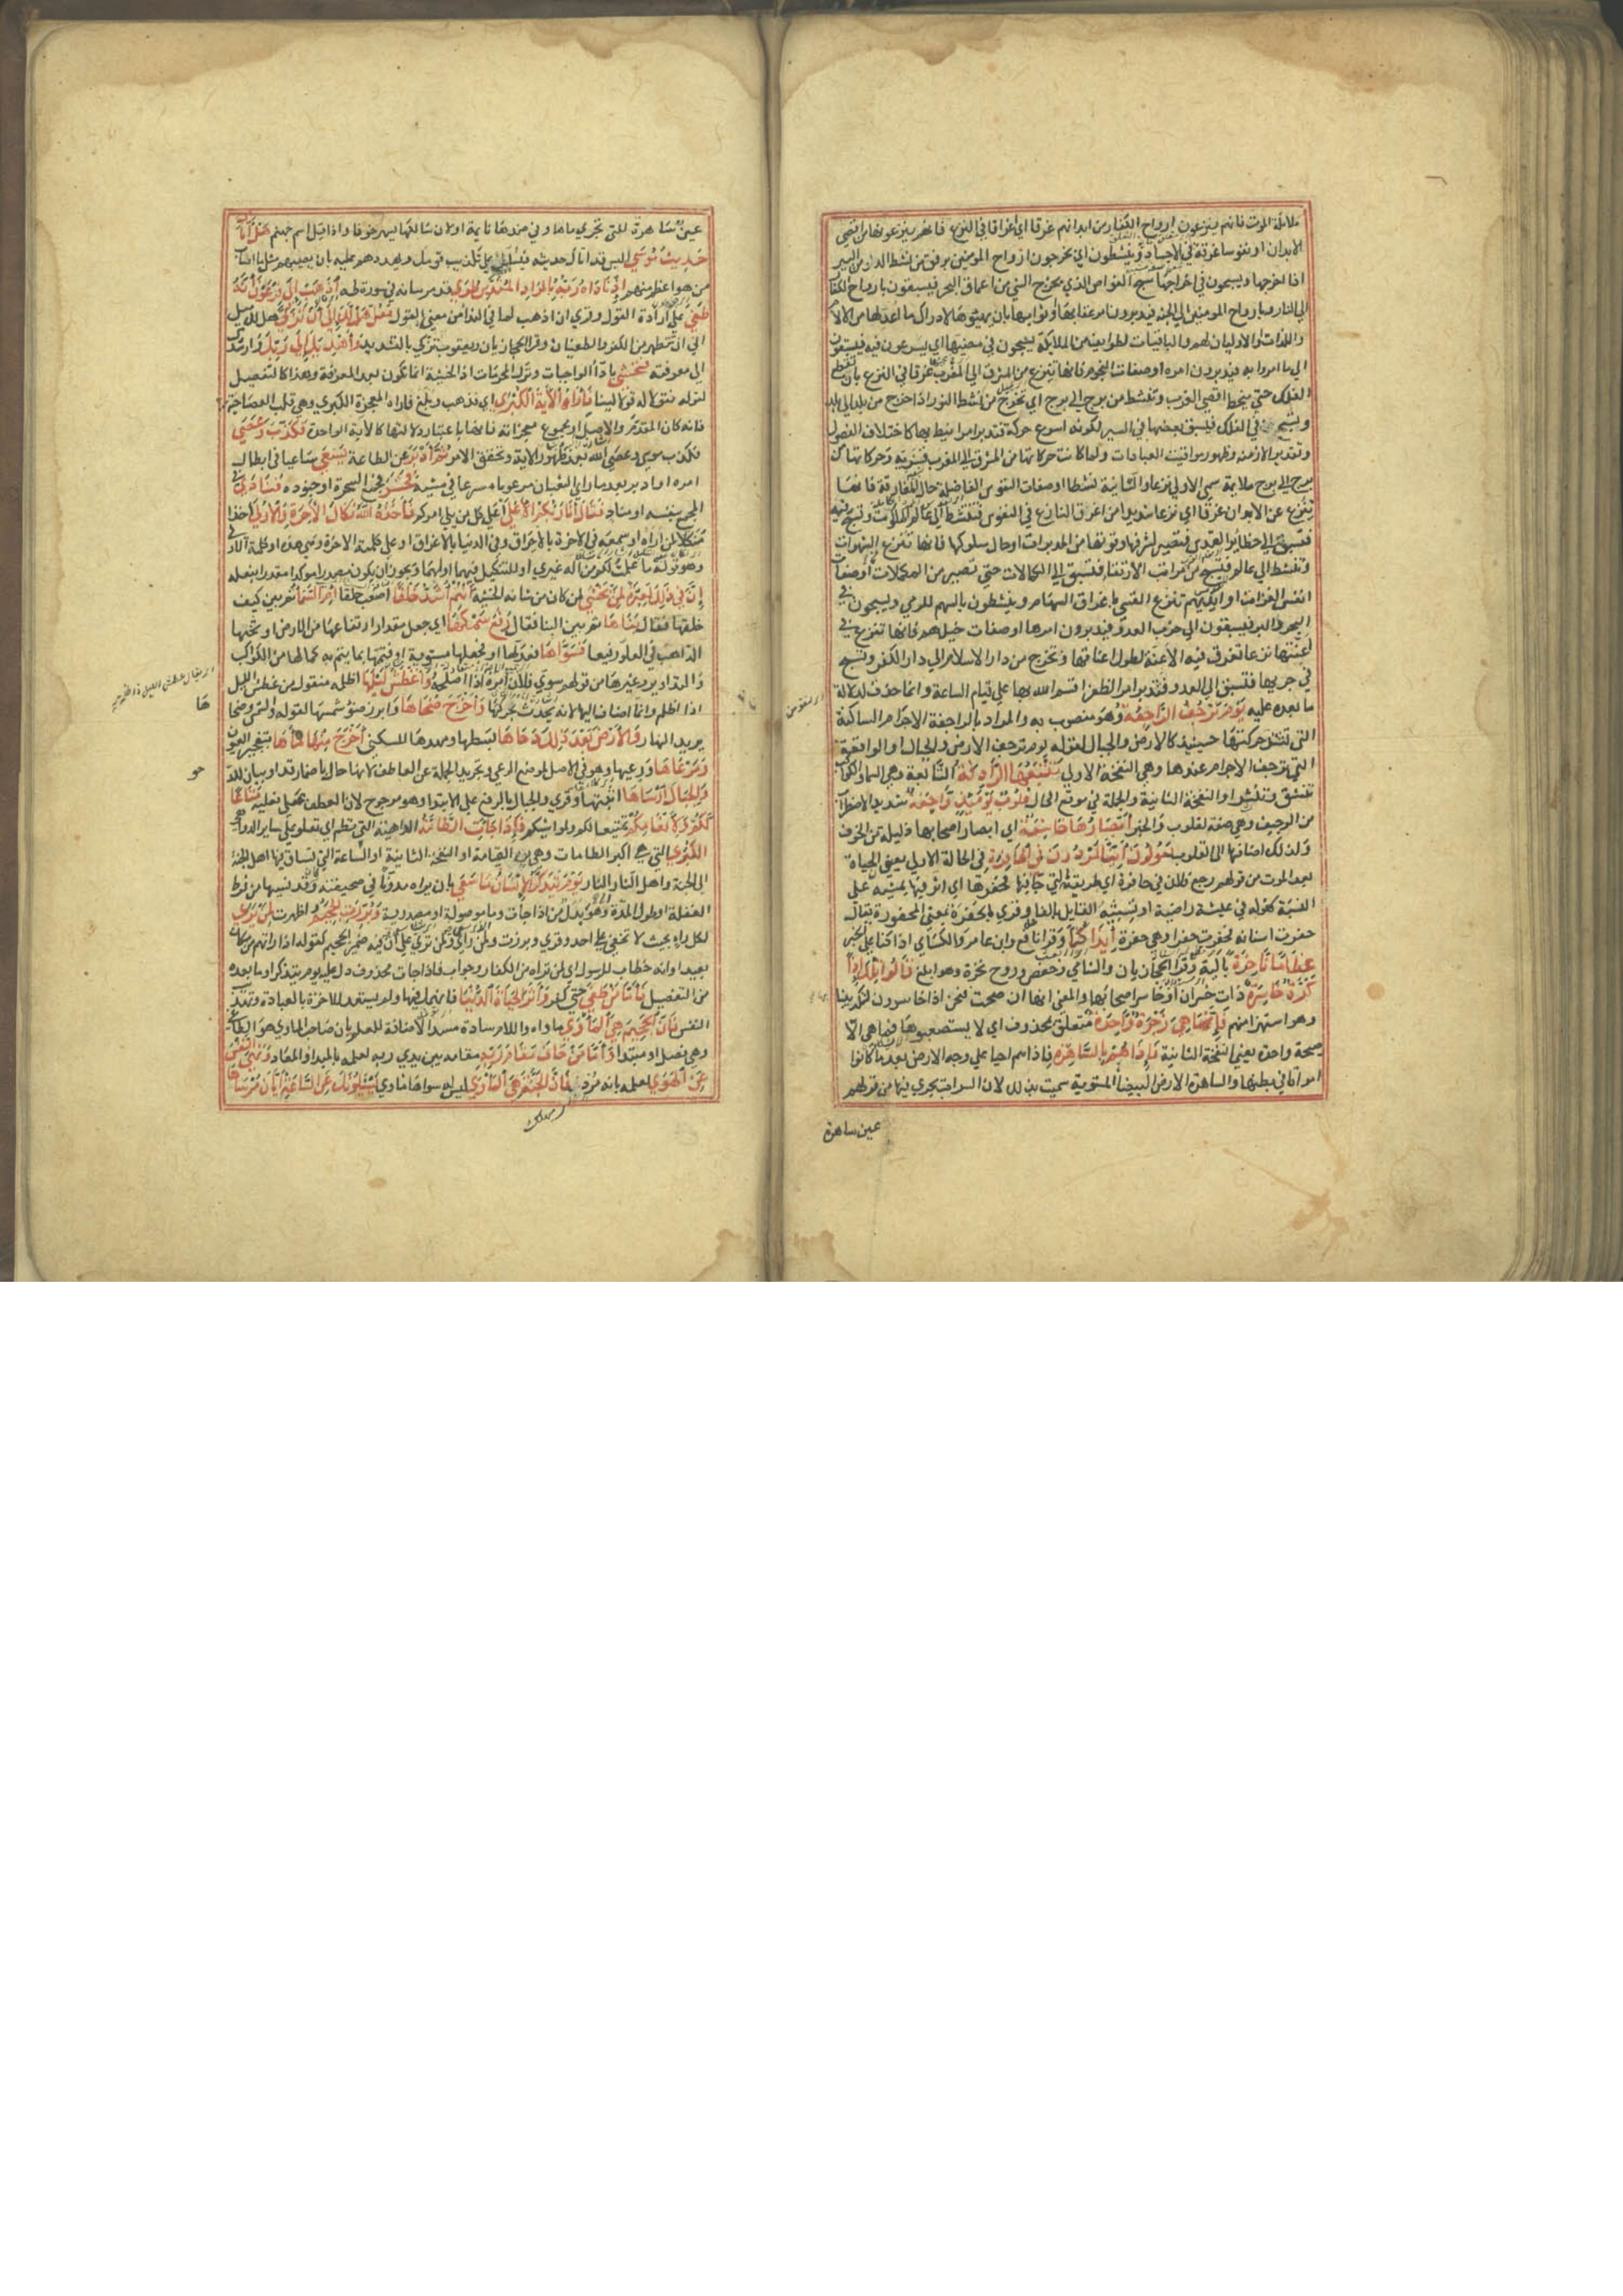 ملائكة الموت فانهم ينزعون ارواح الكفار من ابدانهم غرقا اي اغراقا في النزع فانهم ينزعونها من اقصي
الابدان او نفوسا غرقة في الاجساد وينشطون اي يخرجون ارواح المومنين برفق من نشط الدلو من البير
اذا اخرجها ويسبحون في اخراجها سبح الغواص الذي يخرج الشي من اعماق البحر فيسبقون بارواح الكفار
الي النار وبارواح المومنين الي الجنة فيدبرون امر عقابها وثوابها بان يهيئوها لادراك ما اعد لها من الالام
واللذات او الاوليان لهم والباقيات لطوايف من الملايكة يسبحون في مضيها اي يسرعون فيه فيسبقون
الي ما امروا به فيدبرون امره او صفات النجوم فانها تنزع من المشرق الي المغرب غرقا في النزع بان تقطع
الفلك حتي تنحط اقصي الغرب وتنشط من برج الي برج اي تخرج من نشط الثور اذا خرج من بلد الي بلد
ويسبحن في الفلك فيسبق بعضها في السير لكونه اسرع حركة فتدبر امرا نيط بها كاختلاف الفصول
وتقدير الازمنة وظهور مواقيت العبادات ولما كانت حركاتها من المشرق الي المغرب قسرية وحركاتها من
برج الي برج ملايمة سمي الاولي نزعا والثانية نشطا او صفات النفوس الفاضلة حال المفارقة فانها
تنزع عن الابدان غرقا اي نزعا شديدا من اغراق النازع في القوس فتنشط الي عالم الملكوت وتسبح فيه
فتسبق الي حظاير القدس فتصير لشرفها وقوتها من المدبرات او حال سلوكها فانها تنزع عن الشهوات
وتنشط الي عالم القدس فتسبح في مراتب الارتقا فتسبق الي الكمالات حتي تصير من المكملات او صفات
انفس الغزات او ايديهم تنزع القسي باغراق السهام وينشطون بالسهم للرمي ويسبحون في
البحر والبر فيسبقون الي حرب العدو فيدبرون امرها او صفات خيلهم فانها تنزع في
اعنتها نزعا تغرق فيه الاعنة لطول اعناقها وتخرج من دار الاسلام الي دار الكفر وتسبح
في جريها فتسبق الي العدو فتدبر امر الظفر اقسم الله بها علي قيام الساعة وانما حذف لدلالة
ما بعده عليه يَوْمَ تَرْجُفُ الرَّاجِفَةُ وهو منصوب به والمراد بالراجفة الاجرام الساكنة
التي تشتد حركتها حينيذ كالارض والجبال لقوله يوم ترجف الارض والجبال او الواقعة
التي ترجف الاجرام عندها وهي النفخة الاولي تَتْبَعُهَا الرَّادِفَةُ التابعة وهي السما والكواكب
تنشق وتنتشر او النفخة الثانية والجملة في موقع الحال قُلُوبٌ يَوْمَئِذٍ وَاجِفَةٌ شديدة الاضطراب
من الوجيف وهي صفة لقلوب والخبر أَبْصَارُهَا خَاشِعَةٌ اي ابصار اصحابها ذليلة من الخوف
ولذلك اضافها الي القلوب يَقُولُونَ أَئِنَّا لَمَرْدُودُونَ فِي الْحَافِرَةِ في الحالة الاولي يعني الحياة
بعد الموت من قولهم رجع فلان في حافرة اي طريقته التي جا فيها فحفرها اي اثر فيها بمشيه علي
النسبة كقوله في عيشة راضية او تشبيه القابل بالفا وقري الحفرة بمعني المحفورة يقال
حفرت اسنانه فحفرت حفرا وهي حفرة أَئِذَا كُنَّا وقرا نافع وابن عامر والكساي اذا كنا علي الخبر
عِظَامًا نَاخِرَةً بالية وقرا الحجازيان والشامي وحفص وروح نخرة وهو ابلغ قَالُوا تِلْكَ إِذًا
كَرَّةٌ خَاسِرَةٌ ذات خسران او خاسر اصحابها والمعني انها ان صحت فنحن اذا خاسرون لتكذيبنا
وهو استهزا منهم فَإِنَّمَا هِيَ زَجْرَةٌ وَاحِدَةٌ متعلق بمحذوف اي لا يستصعبوها فما هي الا
صيحة واحدة يعني النفخة الثانية فَإِذَا هُمْ بِالسَّاهِرَةِ فاذا هم احيا علي وجه الارض بعد ما كانوا
امواتا في بطنها والساهرة الارض البيضا المستوية سميت بذلك لان السراب يجري فيها من قولهم
عين ساهرة
عين ساهرة للتي تجري ماها وفي ضدها نايمة او لان سالكها يسهر خوفا واذا قيل اسم جهنم هَلْ أَتَاكَ
حَدِيثُ مُوسَى اليس قد اتاك حديثه فيسليك علي تكذيب قومك ويهددهم عليه بان يصيبهم مثل ما اصاب
من هو اعظم منهم إِذْ نَادَاهُ رَبُّهُ بِالْوَادِ الْمُقَدَّسِ طُوًى قد مر بيانه في سورة طه اذْهَبْ إِلَى فِرْعَوْنَ إِنَّهُ
طَغَى علي ارادة القول وقري ان اذهب لما في الندا من معني القول فَقُلْ هَلْ لَكَ إِلَى أَنْ تَزَكَّى هل لك ميل
الي ان تتطهر من الكفر والطغيان وقرا الحجازيان ويعقوب تزكي بالتشديد وَأَهْدِيَكَ إِلَى رَبِّكَ وارشدك
الي معرفته فَتَخْشَى باداا الواجبات وترك المحرمات اذ الخشية انما تكون بعد المعرفة وهذا كالتفصيل
لقوله فقولا له قولا لينا فَأَرَاهُ الْآيَةَ الْكُبْرَى اي فذهب وبلغ فاراه المعجزة الكبري وهي قلب العصا حية
فانه كان المقدم والاصل او مجموع معجزاته فانها باعتبار دلالتها كالاية الواحدة فَكَذَّبَ وَعَصَى
فكذب موسي وعصي الله بعد ظهور الاية وتحقق الامر ثُمَّ أَدْبَرَ عن الطاعة يَسْعَى ساعيا في ابطال
امره او ادبر بعد ما راي الثعبان مرعوبا مسرعا في مشيه فَحَشَرَ فجمع السحرة او جنوده فَنَادَى في
المجمع بنفسه او مناد فَقَالَ أَنَا رَبُّكُمُ الْأَعْلَى اعلي كل من يلي امركم فَأَخَذَهُ اللَّهُ نَكَالَ الْآخِرَةِ وَالْأُولَى اخذا
منكلا لمن راه او سمعه في الاخرة بالاحراق وفي الدنيا بالاغراق او علي كلمته الاخرة وهي هذه او كلمته الاولي
وهو قوله ما علمت لكم من اله غيري او للتنكيل فيهما اولهما ويجوز ان يكون مصدرا موكدا مقدرا بفعله
إِنَّ فِي ذَلِكَ لَعِبْرَةً لِمَنْ يَخْشَى لمن كان من شانه الخشية أَأَنْتُمْ أَشَدُّ خَلْقًا اصعب خلقا أَمِ السَّمَاءُ ثم بين كيف
خلقها فقال بَنَاهَا ثم بين البنا فقال رَفَعَ سَمْكَهَا اي جعل مقدار ارتفاعها من الارض او ثخنها
الذاهب في العلو رفيعا فَسَوَّاهَا فعدلها او فجعلها مستوية او فتممها بما يتم به كمالها من الكواكب
والتداوير وغيرها من قولهم سوي فلان امره اذا اصلحه وَأَغْطَشَ لَيْلَهَا اظلمه منقول من غطش الليل
اذا اظلم وانما اضاف اليها لانه يحدث بحركتها وَأَخْرَجَ ضُحَاهَا وابرز ضو شمسها لقوله والشمس وضحاها
يريد النهار وَالْأَرْضَ بَعْدَ ذَلِكَ دَحَاهَا بسطها ومهدها للسكني أَخْرَجَ مِنْهَا مَاءَهَا بتفجير العيون
وَمَرْعَاهَا ورعيها وهو في الاصل لموضع الرعي وتجريد الجملة عن العاطف لانها حال باضمار قد او بيان للدحو
وَالْجِبَالَ أَرْسَاهَا اثبتها وقري والجبال بالرفع علي الابتدا وهو مرجوح لان العطف علي فعلية مَتَاعًا
لَكُمْ وَلِأَنْعَامِكُمْ تمتيعا لكم ولمواشيكم فَإِذَا جَاءَتِ الطَّامَّةُ الداهية التي تطم اي تعلو علي ساير الدواهي
الْكُبْرَى التي هي اكبر الطامات وهي القيامة او النفخة الثانية او الساعة التي يساق فيها اهل الجنة
الي الجنة واهل النار الي النار يَوْمَ يَتَذَكَّرُ الْإِنْسَانُ مَا سَعَى بان يراه مدونا في صحيفته وقد نسيها من فرط
الغفلة او طول المدة وهو بدل من اذا جات وما موصولة او مصدرية وَبُرِّزَتِ الْجَحِيمُ واظهرت لِمَنْ يَرَى
لكل راء بحيث لا تخفي علي احد وقري وبرزت ولمن راي ولمن تري علي ان فيه ضمير الجحيم كقوله اذا راتهم من مكان
بعيد او انه خطاب للرسول اي لمن تراه من الكفار وجواب فاذا جات محذوف دل عليه يوم يتذكر او ما بعده
من التفصيل فَأَمَّا مَنْ طَغَى حتي كفر وَآثَرَ الْحَيَاةَ الدُّنْيَا فانهمك فيها ولم يستعد للاخرة بالعبادة وتهذيب
النفس فَإِنَّ الْجَحِيمَ هِيَ الْمَأْوَى ماواه واللام سادة مسد الاضافة للعلم بان صاحب الماوي هو الطاغي
وهي فصل او مبتدا وَأَمَّا مَنْ خَافَ مَقَامَ رَبِّهِ مقامه بين يدي ربه لعلمه بالمبدا والمعاد وَنَهَى النَّفْسَ
عَنِ الْهَوَى لعلمه بانه مرد فَإِنَّ الْجَنَّةَ هِيَ الْمَأْوَى ليس له سواها ماوي يَسْأَلُونَكَ عَنِ السَّاعَةِ أَيَّانَ مُرْسَاهَا